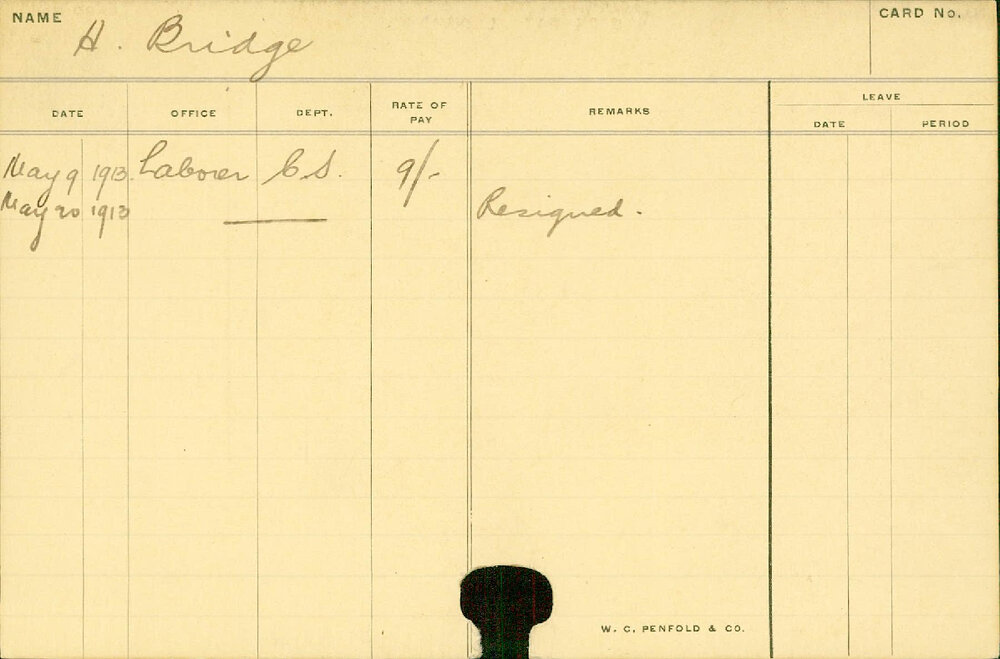 NAME H. Bridge CARD No.
DATE OFFICE DEPT. RATE OF PAY REMARKS LEAVE
DATE PERIOD
May 9 1913. Laborer C.S. 9/-
May 20 1913 Resigned.
W. C. PENFOLD & CO.